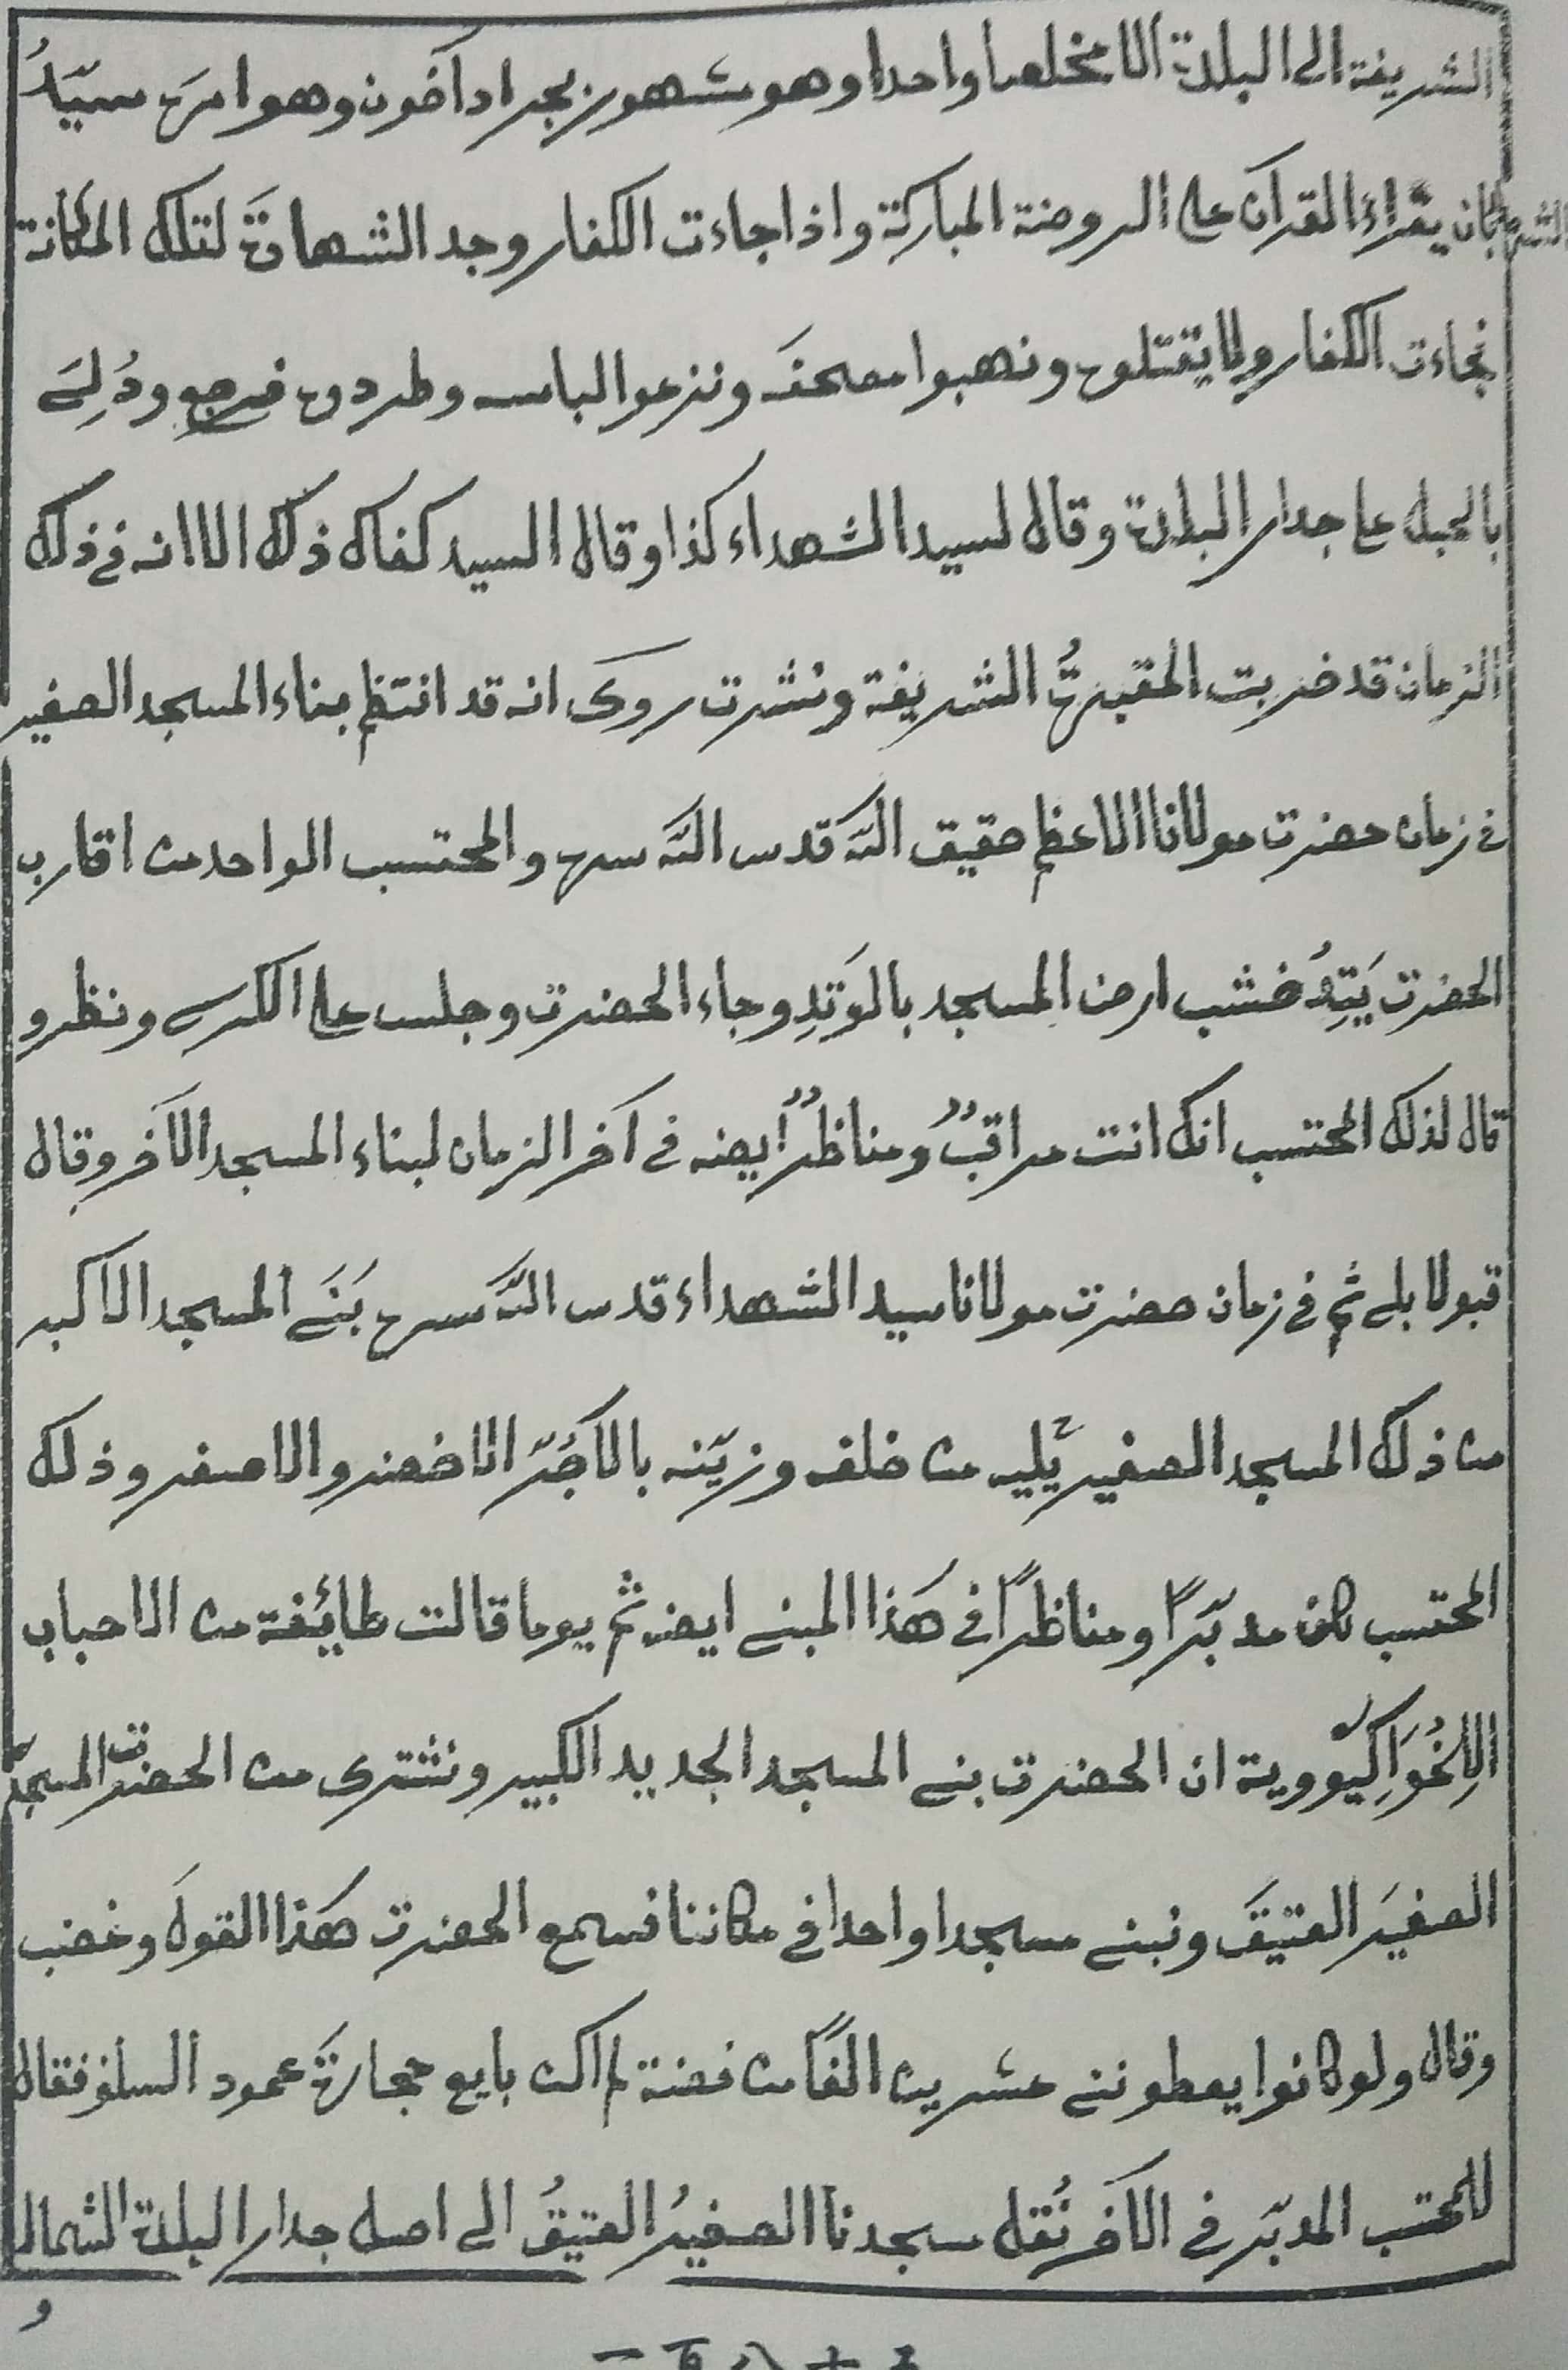 الشريفة الى البلدة الا مخلصا واحدا وهو مشهور بجرادآخون وهو امرَه سيّدُ
الشهـ كان يقراء القرآن على الروضة المباركة واذا جاءت الكفار وجد الشهادةَ لتلك المكانة
فجاءت الكفار ولا يقتلوه ونهبوا مصحفَه ونزعوا لباسه وطردوه فرجع ودُلِىَ
بالحبل على جدار البلدة وقال لسيد الشهداء كذا وقال السيد كفاك ذلك الا انه فى ذلك
الزمان قد ضربت المقبرةُ الشريفة ونشرت روى انه قد انتظم بناء المسجد الصغير
فى زمان حضرت مولانا الاعظم حقيق الله قدس الله سره والمحتسب الواحد من اقارب
الحضرت يَتِدُ خشب ارض المسجد بالوَتَدِ وجاء الحضرت وجلس على الكرسى ونظر و
قال لذلك المحتسب انك انت مراقبٌ ومناظرٌ ايضه فى آخر الزمان لبناء المسجد الآخر وقال
قبولا بلى ثم فى زمان حضرت مولانا سيد الشهداء قدس الله سره بَنَى المسجد الاكبر
من ذلك المسجد الصغير يليه من خلفه وزيّنه بالآجُرّ الاخضر والاصفر وذلك
المحتسب كان مدبّرًا ومناظرًا فى هَذا المبنى ايضه ثم يوما قالت طائفة من الاحباب
الاِخُوَاكِيّووية ان الحضرت بنى المسجد الجديد الكبير ونشترى من الحضرت المسجدَ
الصغيرَ العتيقَ ونبنى مسجدا واحدا فى مكاننا فسمع الحضرت هَذا القولَ وغضب
وقال ولو كانوا يعطوننى عشرين الفًا من فضة لم اكن بايع حجارةَ عمود السلف فقال
للمحتسب المدبّر فى الآخر نُقل مسجدنا الصغيرُ العتيقُ الى اصل جدار البلدة الشمالى
و
一百八十三